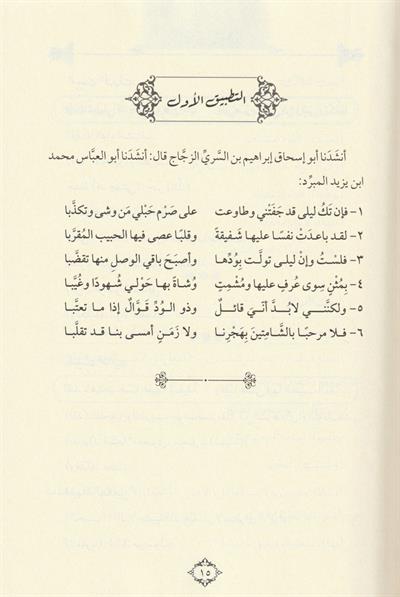 التطبيق الأول
أنشَدَنا أبو إسحاق إبراهيم بن السَّريِّ الزجَّاج قال: أنشَدَنا أبو العبَّاس محمد
ابن يزيد المبرِّد:
١- فإن تَكُ ليلى قد جَفَتْني وطاوعت على صَرْمِ حَبْلي مَن وشى وتكذَّبا
٢- لقد باعدَتْ نفسًا عليها شَفيقةً وقلبًا عصى فيها الحبيبَ المُقرَّبا
٣- فلستُ وإنْ ليلى تولَّت بِوُدِّها وأصبَحَ باقي الوصلِ منها تقضَّبا
٤- بِمُثْنٍ سِوى عُرفٍ عليها ومُشمِتٍ وُشاةً بها حَوْلي شُهودًا وغُيَّبا
٥- ولكنَّني لابُدَّ أنّيَ قائلٌ وذو الوُدِّ قَوَّالٌ إذا ما تعتَّبا
٦- فلا مرحبًا بالشَّامِتينَ بِهَجْرِنا ولا زَمَنٍ أمسى بنا قد تقلَّبا
١٥